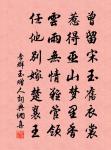 曾留宋玉舊衣裳
惹得巫山夢里香
雲雨無情難管領
任他別嫁楚襄王
李群玉贈人詞典網書